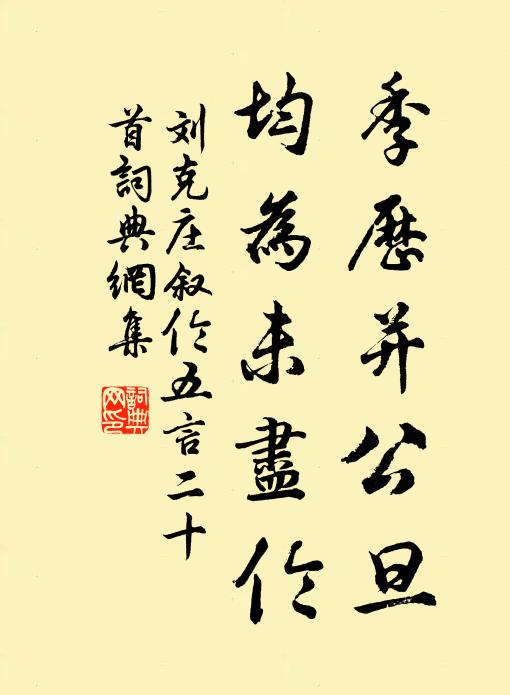 季歷并公旦
均為未盡伦
刘克庄叙伦五言二十
首詞典網集
詞典
网印